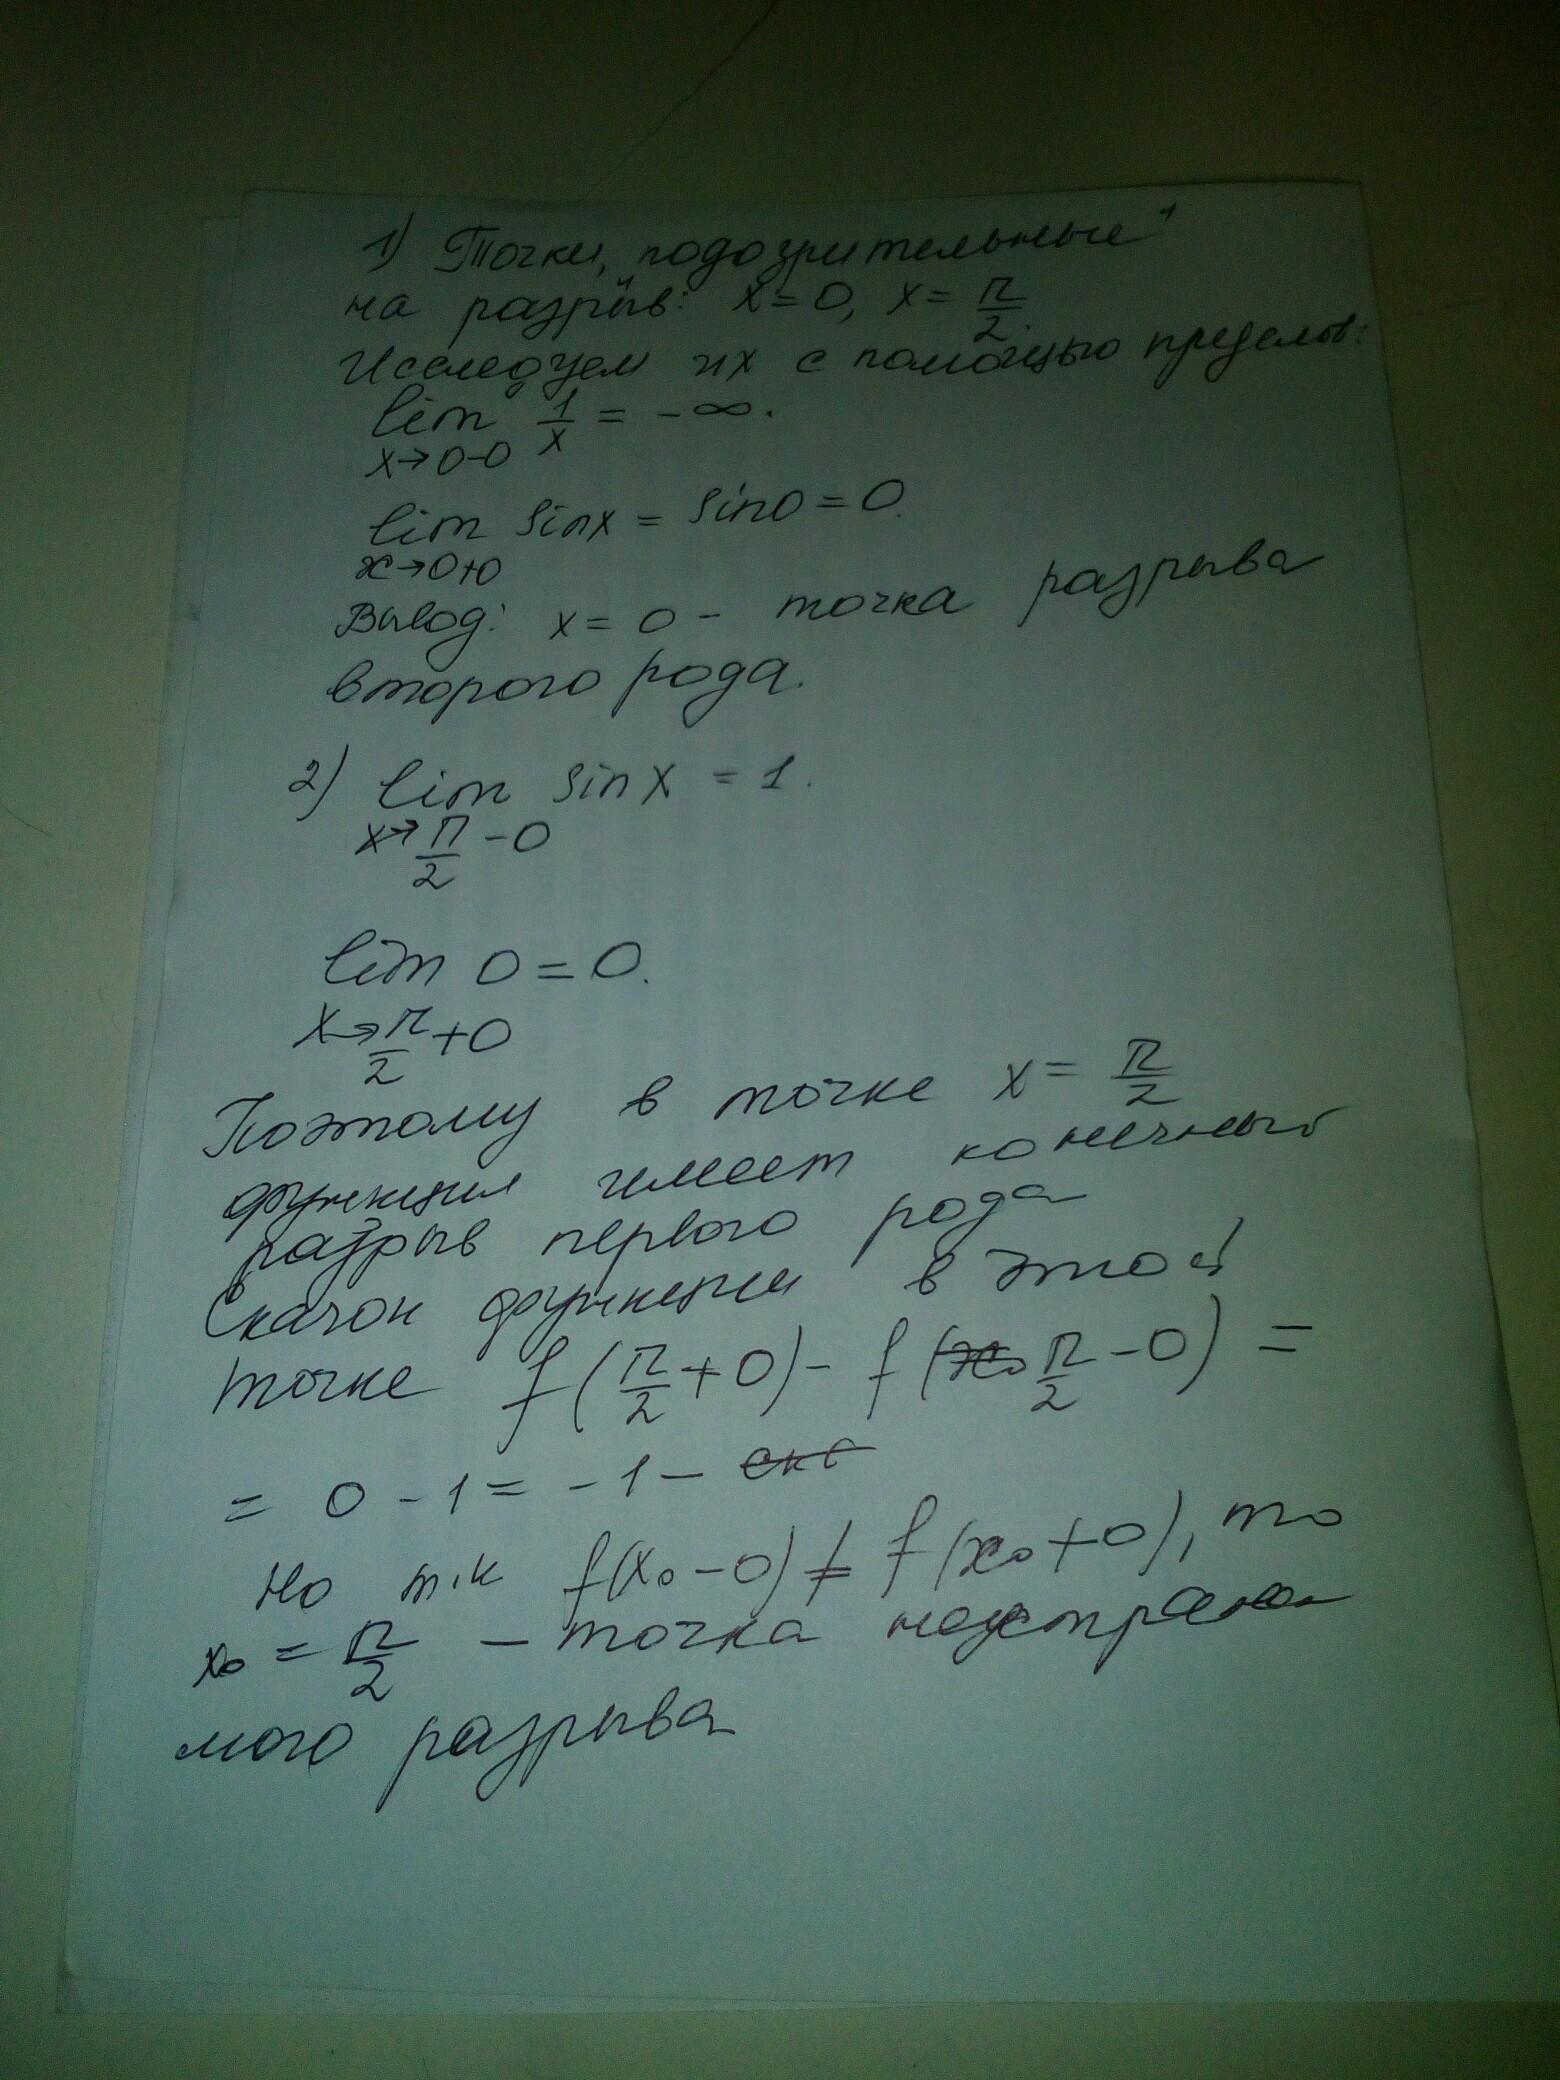 1) Точки, „подозрительные"
на разрыв: x=0, x= π/2.
Исследуем их с помощью пределов:
lim 1/x = -∞.
x→0-0
lim sinx = sin0 = 0.
x→0+0
Вывод: x = 0 - точка разрыва
второго рода.
2) lim sinx = 1.
x→ π/2 -0
lim 0 = 0.
x→ π/2 +0
Поэтому в точке x = π/2
функция имеет конечный
разрыв первого рода
Скачок функции в этой
точке f(π/2+0) - f(π/2 -0) =
= 0 - 1 = -1 -
Но т.к f(x₀-0) ≠ f(x₀+0), то
x₀ = π/2 - точка неустрани
мого разрыва